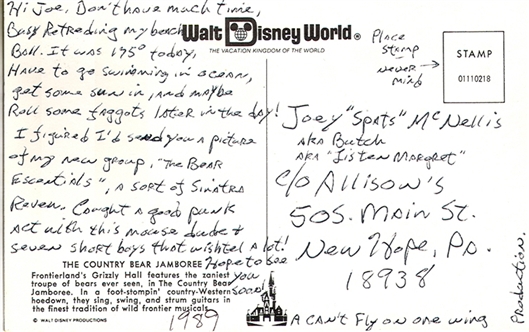 Hi Joe, Don't have much time,
Busy Retreading my beach
Ball. It was 175° today,
Have to go swimming in ocean,
get some sun in, and maybe
Roll some faggots later in the day!
I figured I'd send you a picture
of my new group, "The Bear
Escentials", a sort of Sinatra
Revew. Caught a good punk
act with this mouse dude &
seven short boys that wishtel a lot!
Hope to see
you
soon!
THE COUNTRY BEAR JAMBOREE
Frontierland's Grizzly Hall features the zaniest
troupe of bears ever seen, in The Country Bear
Jamboree. In a foot-stompin' country-Western
hoedown, they sing, swing, and strum guitars in
the finest tradition of wild frontier musicals.
© WALT DISNEY PRODUCTIONS
1989
Walt Disney World®
THE VACATION KINGDOM OF THE WORLD
Place
Stamp
never
mind
STAMP
01110218
Joey "Spats" McNellis
AKA Butch
AKA "Listen Margret"
c/o Allison's
50 S. Main St.
New Hope, Pa.
18938
A can't Fly on one wing
Production.